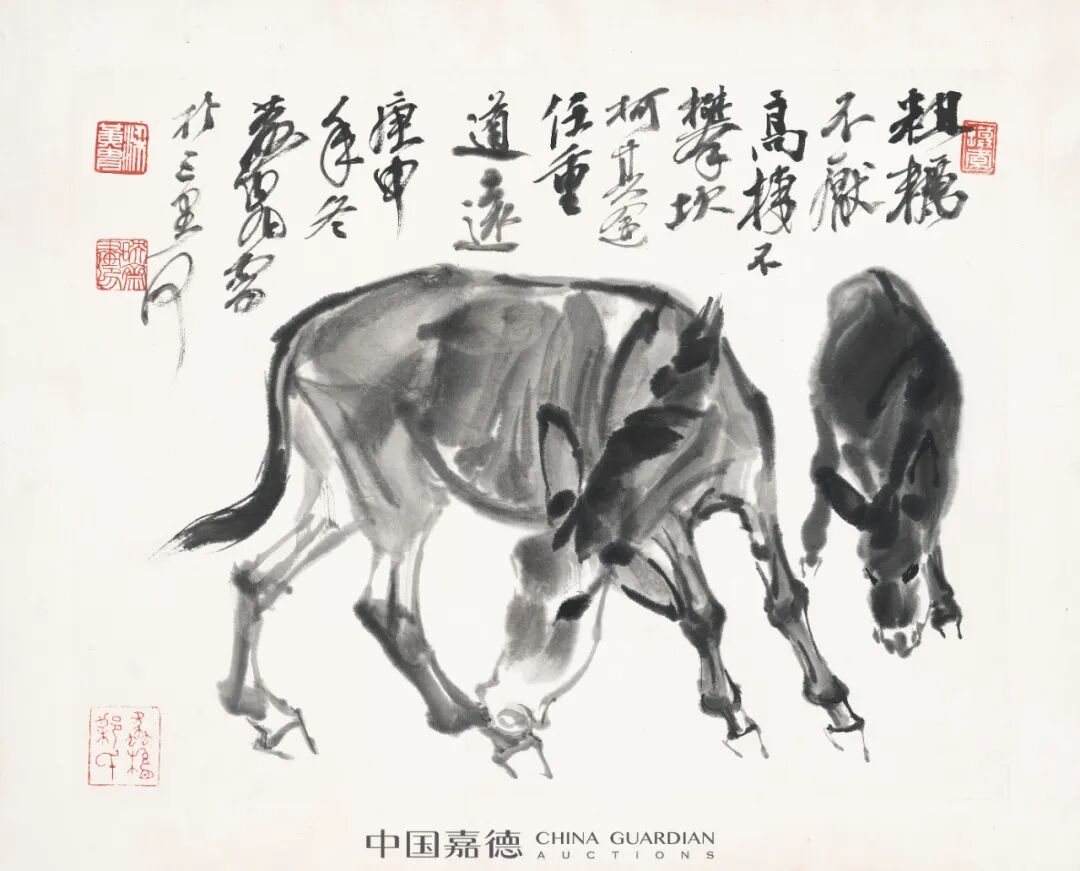 粗糲
不厭
高棲不
攀坎
坷其途
任重
道遠
庚申
年冬
黃胄寫
於三里河
中国嘉德 CHINA GUARDIAN
AUCTIONS